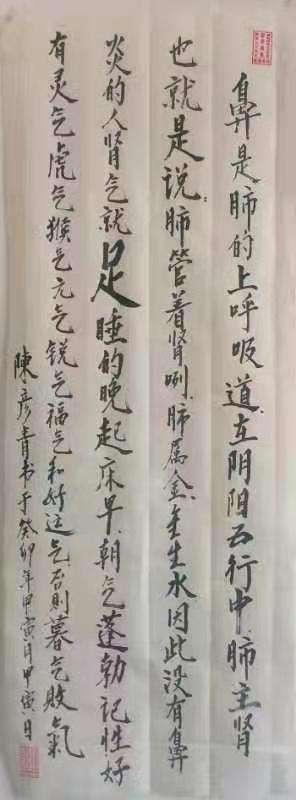 鼻是肺的上呼吸道.在阴阳五行中肺主肾
也就是说.肺管着肾咧.肺属金.金生水因此没有鼻
炎的人肾气就足睡的晚起床早.朝气蓬勃记性好
有灵气虎气猴气元气锐气福气和好运气.否则暮气败氣
陳彦青书于癸卯年甲寅月甲寅日